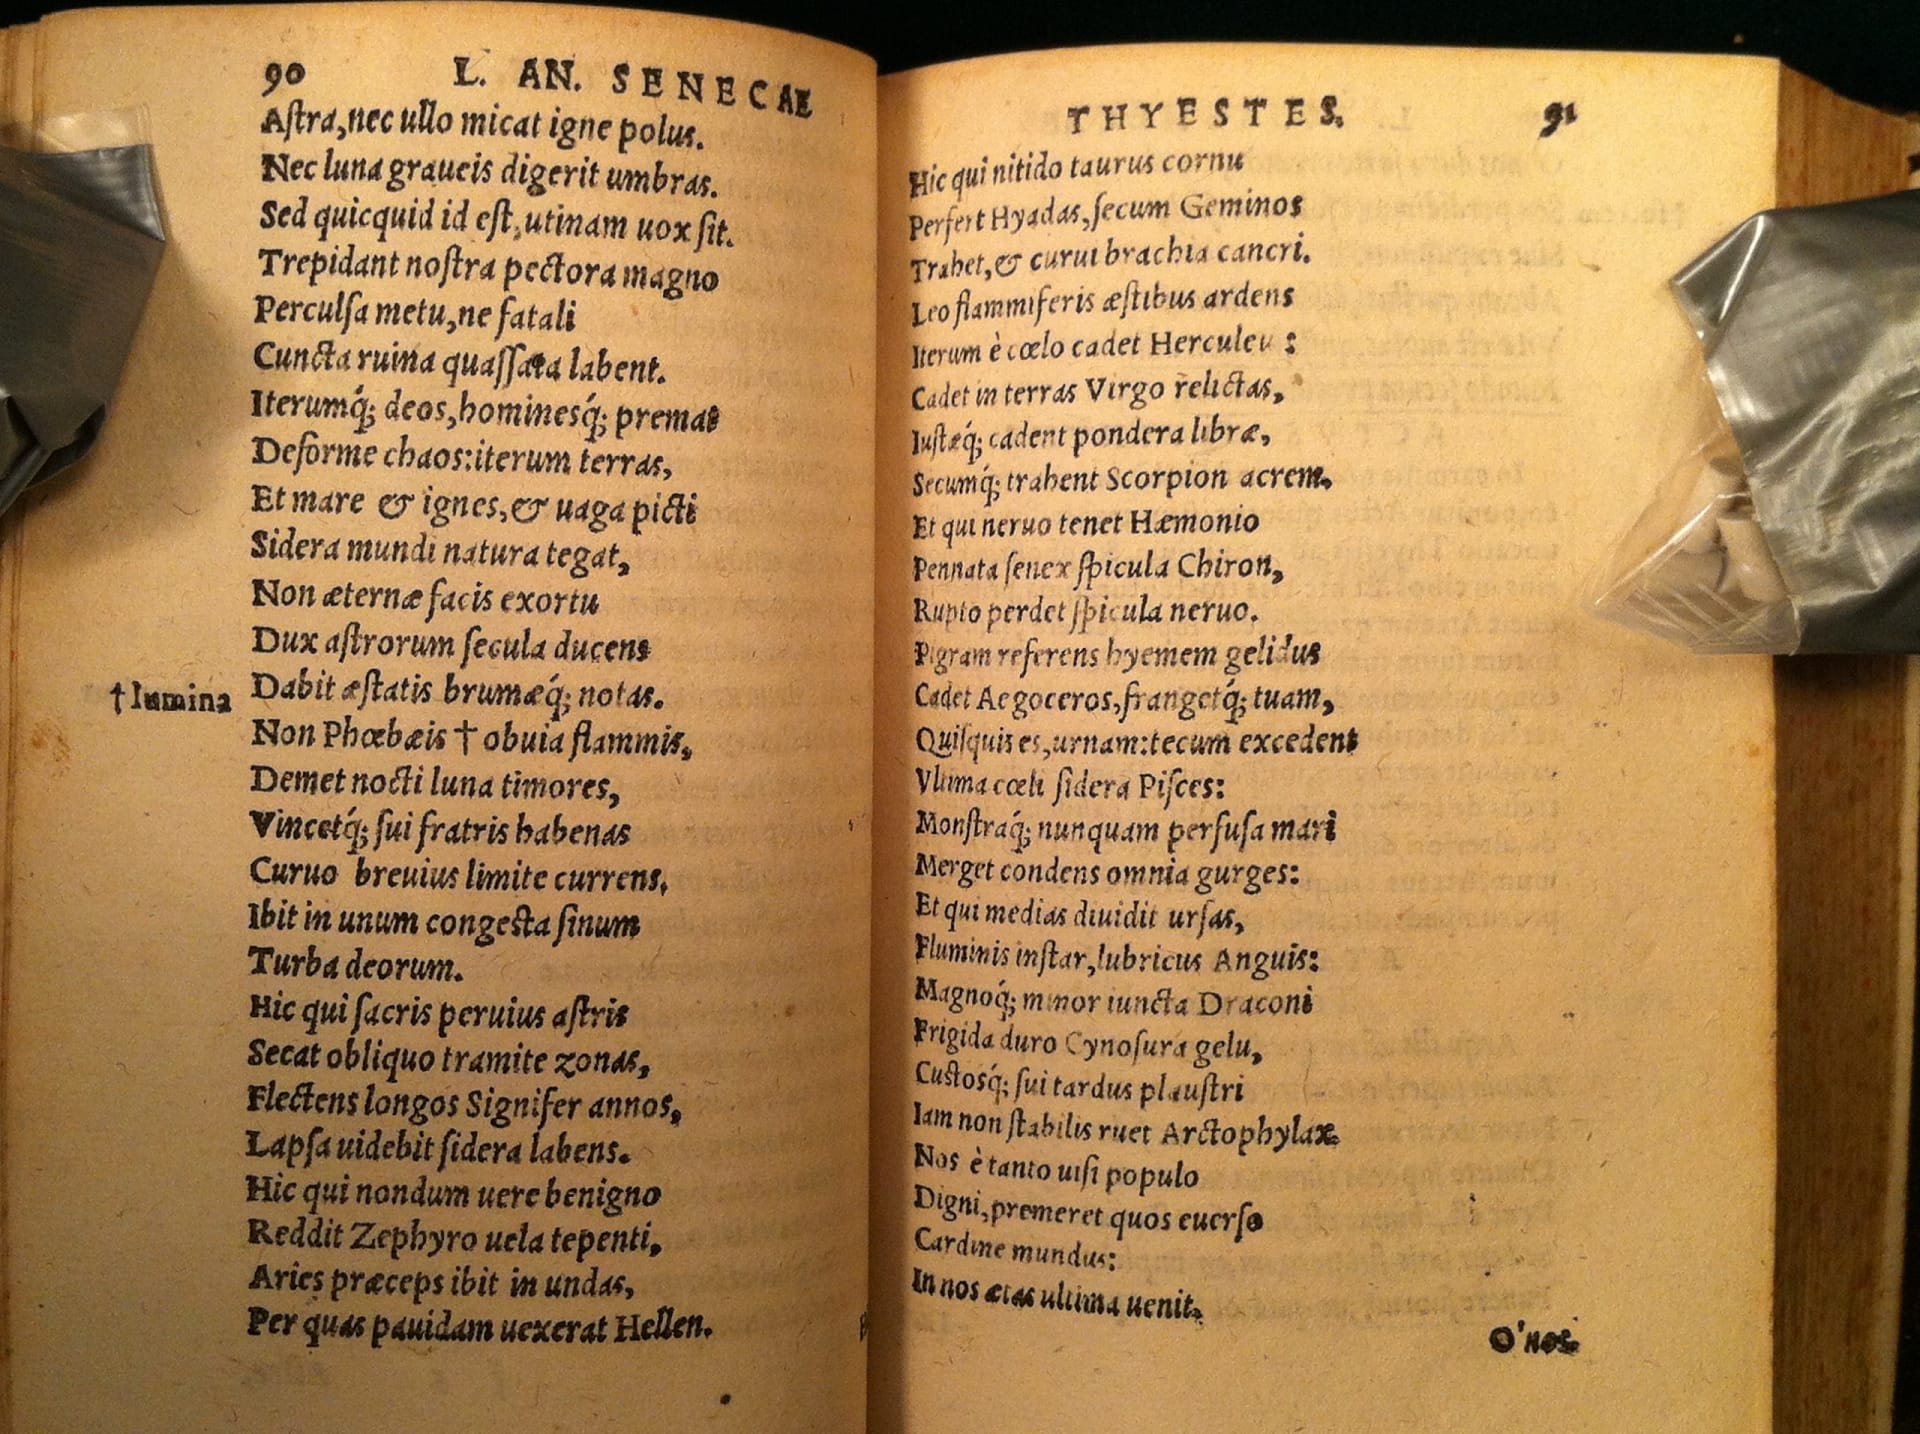 90 L. AN. SENECAE
Aſtra, nec ullo micat igne polus.
Nec luna graueis digerit umbras.
Sed quicquid id eſt, utinam uox ſit.
Trepidant noſtra pectora magno
Perculſa metu, ne fatali
Cuncta ruina quaſſata labent.
Iterumq́; deos, hominesq́; premat
Deforme chaos: iterum terras,
Et mare & ignes, & uaga picti
Sidera mundi natura tegat,
Non æternæ facis exortu
Dux aſtrorum ſecula ducens
†lumina
Dabit æſtatis brumæq́; notas.
Non Phœbæis † obuia flammis,
Demet nocti luna timores,
Vincetq́; ſui fratris habenas
Curuo breuius limite currens,
Ibit in unum congeſta ſinum
Turba deorum.
Hic qui ſacris peruius aſtris
Secat obliquo tramite zonas,
Flectens longos Signifer annos,
Lapſa uidebit ſidera labens.
Hic qui nondum uere benigno
Reddit Zephyro uela tepenti,
Aries præceps ibit in undas,
Per quas pauidam uexerat Hellen.
THYESTES. 91
Hic qui nitido taurus cornu
Perfert Hyadas, ſecum Geminos
Trahet, & curui brachia cancri.
Leo flammiferis æſtibus ardens
Iterum è cœlo cadet Herculeus:
Cadet in terras Virgo relictas,
Iuſtæq́; cadent pondera libræ,
Secumq́; trahent Scorpion acrem.
Et qui neruo tenet Hæmonio
Pennata ſenex ſpicula Chiron,
Rupto perdet ſpicula neruo.
Pigram referens hyemem gelidus
Cadet Aegoceros, frangetq́; tuam,
Quiſquis es, urnam: tecum excedent
Vltima cœli ſidera Piſces:
Monſtraq́; nunquam perfuſa mari
Merget condens omnia gurges:
Et qui medias diuidit urſas,
Fluminis inſtar, lubricus Anguis:
Magnoq́; minor iuncta Draconi
Frigida duro Cynoſura gelu,
Cuſtosq́; ſui tardus plauſtri
Iam non ſtabilis ruet Arctophylax.
Nos è tanto uiſi populo
Digni, premeret quos euerſo
Cardine mundus:
In nos ætas ultima uenit.
O' nos.